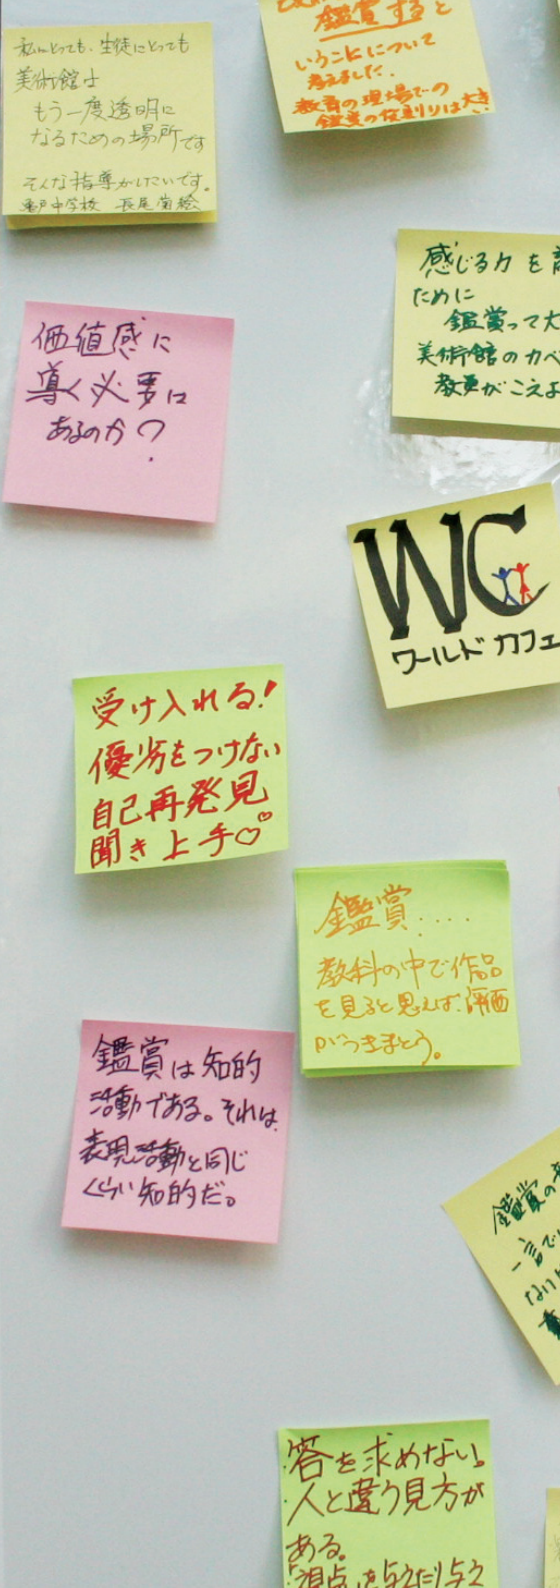 私にとっても、生徒にとっても
美術館は
もう一度透明に
なるための場所です
そんな指導がしたいです。
中学校
鑑賞すると
いうことについて
考えました.
教育の現場での
鑑賞の役割りは大き
感じる力を育
ために
鑑賞って大
美術館のカベ
教員がこえよ
価値感に
導く必要は
あるのか?
WC
ワールドカフェ
受け入れる!
優劣をつけない
自己再発見
聞き上手♡
鑑賞....
教科の中で作品
を見ると思えば、評価
がつきまとう。
鑑賞は知的
活動である。それは、
表現活動と同じ
くらい知的だ。
鑑賞の
一言で
ないと
答を求めない。
人と違う見方が
ある。
視点を与えたり与え